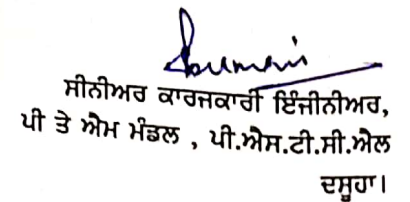 ਸੀਨੀਅਰ ਕਾਰਜਕਾਰੀ ਇੰਜੀਨੀਅਰ,
ਪੀ ਤੇ ਐਮ ਮੰਡਲ , ਪੀ.ਐਸ.ਟੀ.ਸੀ.ਐਲ
ਦਸੂਹਾ।